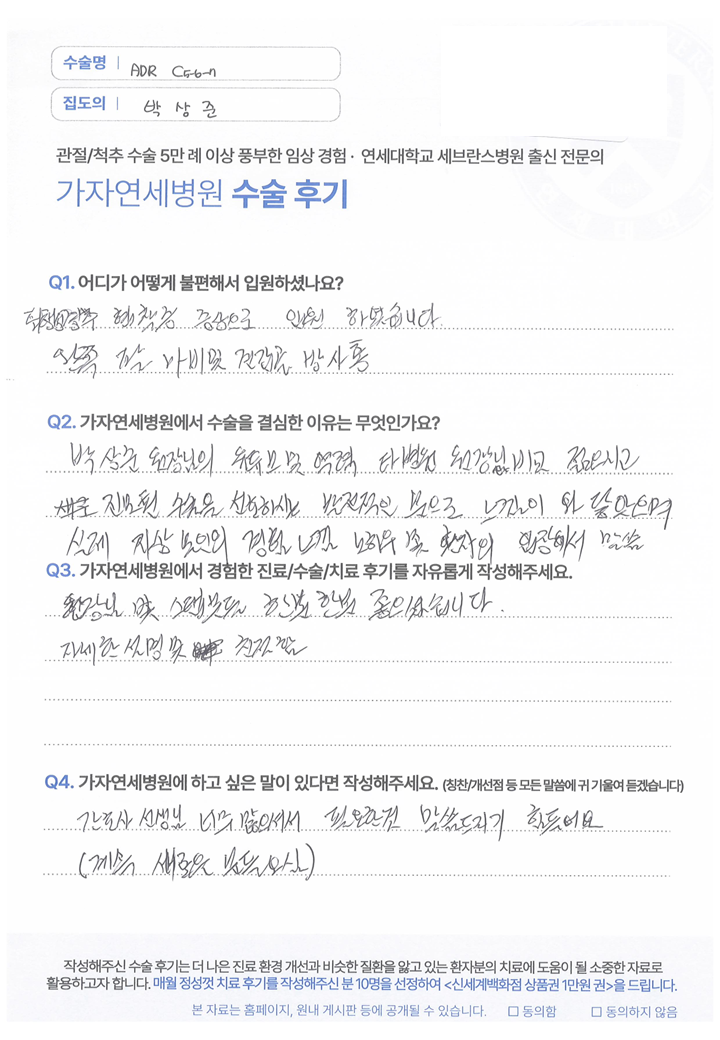 수술명 | ADR C5-6-7
집도의 | 박상준
관절/척추 수술 5만 례 이상 풍부한 임상 경험 · 연세대학교 세브란스병원 출신 전문의
가자연세병원 수술 후기
Q1. 어디가 어떻게 불편해서 입원하셨나요?
협착증 증상으로 입원 하였습니다.
왼쪽 팔 마비 및 견갑골 방사통
Q2. 가자연세병원에서 수술을 결심한 이유는 무엇인가요?
박상준 원장님의 유튜브 및 약력 타병원 원장님 비교 젊으시고
진보된 수술을 선호하시는 발전적인 분으로 느낌이 와 닿았으며
실제 환자의 입장에서 말씀
Q3. 가자연세병원에서 경험한 진료/수술/치료 후기를 자유롭게 작성해주세요.
원장님 및 스탭분들 한분 한분 좋으셨습니다.
자세한 설명 및 친절함
Q4. 가자연세병원에 하고 싶은 말이 있다면 작성해주세요. (칭찬/개선점 등 모든 말씀에 귀 기울여 듣겠습니다)
간호사 선생님 너무 많으셔서 필요한것 말씀드리기 힘들어요
(계속 새로운 분들 오심)
작성해주신 수술 후기는 더 나은 진료 환경 개선과 비슷한 질환을 앓고 있는 환자분의 치료에 도움이 될 소중한 자료로
활용하고자 합니다. 매월 정성껏 치료 후기를 작성해주신 분 10명을 선정하여 <신세계백화점 상품권 1만원 권>을 드립니다.
본 자료는 홈페이지, 원내 게시판 등에 공개될 수 있습니다. □ 동의함 □ 동의하지 않음